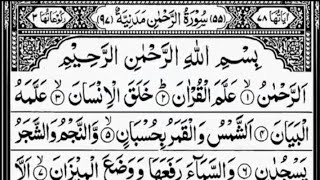 اٰیَاتُهَا ۷۸ (۵۵) سُوْرَةُ الرَّحْمٰنِ مَدَنِیَّةٌ (۹۷) رُكُوْعَاتُهَا ۳
بِسْمِ اللّٰهِ الرَّحْمٰنِ الرَّحِیْمِ
اَلرَّحْمٰنُ ۙ﴿۱﴾ عَلَّمَ الْقُرْاٰنَ ؕ﴿۲﴾ خَلَقَ الْاِنْسَانَ ۙ﴿۳﴾ عَلَّمَهُ
الْبَیَانَ ﴿۴﴾ اَلشَّمْسُ وَ الْقَمَرُ بِحُسْبَانٍ ۪﴿۵﴾ وَّ النَّجْمُ وَ الشَّجَرُ
یَسْجُدٰنِ ﴿۶﴾ وَ السَّمَآءَ رَفَعَهَا وَ وَضَعَ الْمِیْزَانَ ۙ﴿۷﴾ اَلَّا